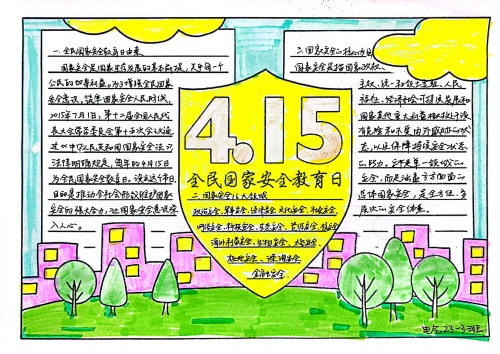 一.全民国家安全教育日由来
国家安全是国家生存发展的基本前提,关乎每一个
公民的切身利益。为了增强全民国家
安全意识,筑牢国家安全人民防线,
2015年7月1日,第十二届全国人民代
表大会常务委员会第十五次会议通
过《中华人民共和国国家安全法》
法律明确规定,每年的4月15日
为全民国家安全教育日。设立这个节日
目的是推动全社会形成维护国家
安全的强大合力,让国家安全意识深
入人心。
4.15
全民国家安全教育日
二.国家安全16大领域
政治安全、军事安全、经济安全、文化安全、社会安全
网络安全、科技安全、生态安全、资源安全、核安全
海外利益安全、生物安全、太空安全、
极地安全、深海安全
金融安全
三.国家安全的核心
国家安全是指国家政权、
主权、统一和领土完整、人民
福祉、经济社会可持续发展和
国家其他重大利益相对处于没
有危险和不受内外威胁的状
态,以及保障持续安全状态
的能力。它不是单一领域的
安全,而是涵盖多方面的
总体国家安全,是全方位、多
层次的安全体系。
电气23-3班